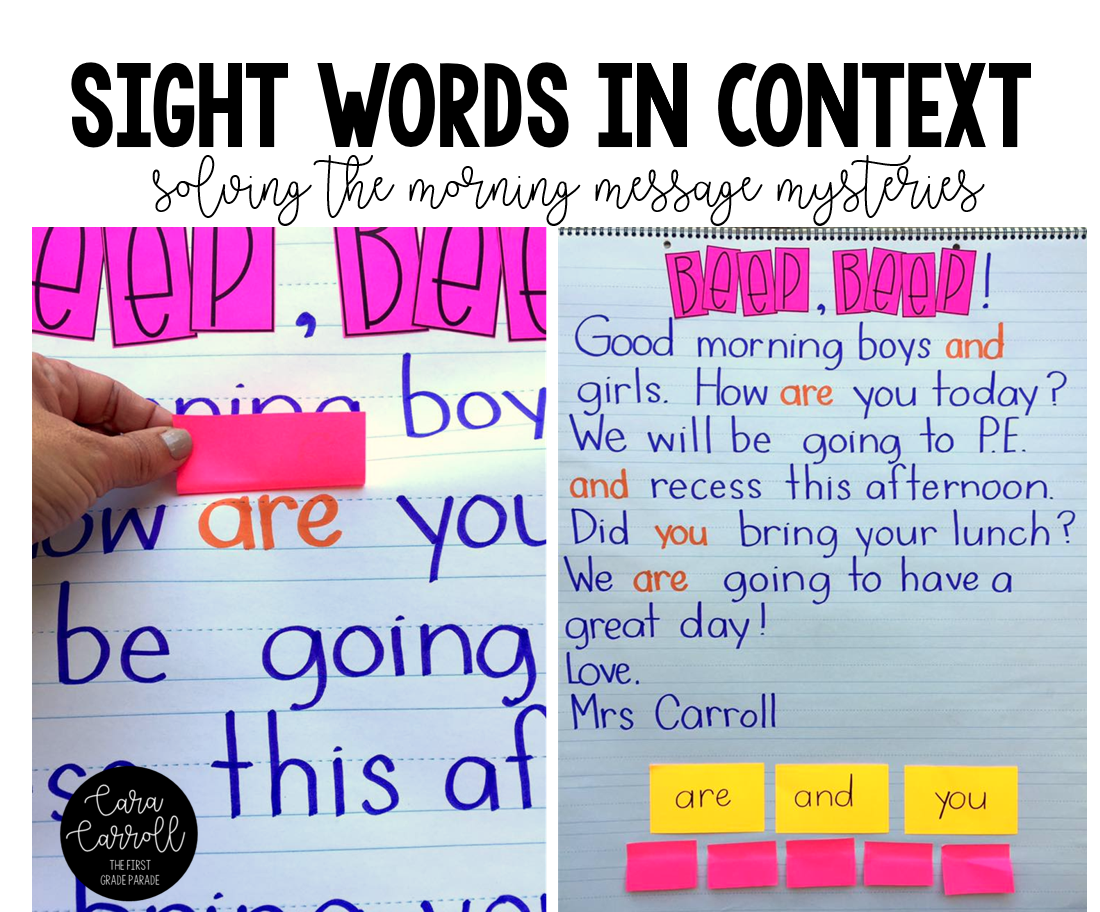 SIGHT WORDS IN CONTEXT
solving the morning message mysteries
eep, Bee
boy
ow are you
be going
this af
Cara
Carroll
THE FIRST
GRADE PARADE
BEEP, BEEP!
Good morning boys and
girls. How are you today?
We will be going to P.E.
and recess this afternoon.
Did you bring your lunch?
We are going to have a
great day!
Love,
Mrs Carroll
are and you